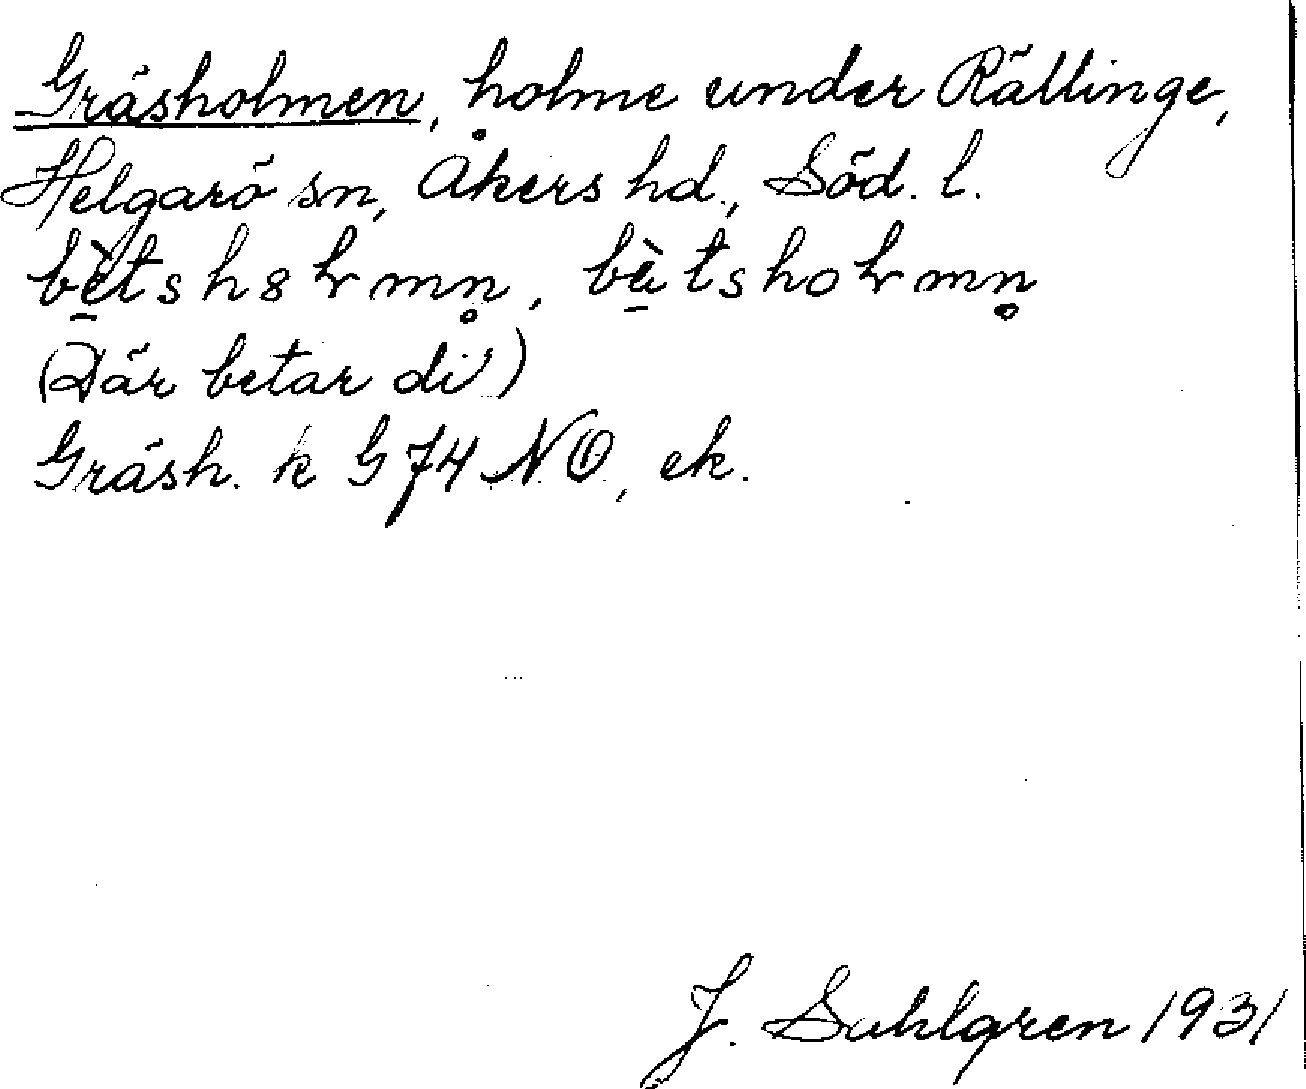 Gräsholmen, holme under Rällinge,
Helgarö sn, Åkers hd., Söd. l.
bè̱tshoɽmn̥, bä̱̀tshoɽmn̥
(Där betar di')
Gräsh. k G 74 NO, ek.
J. Sahlgren 1931